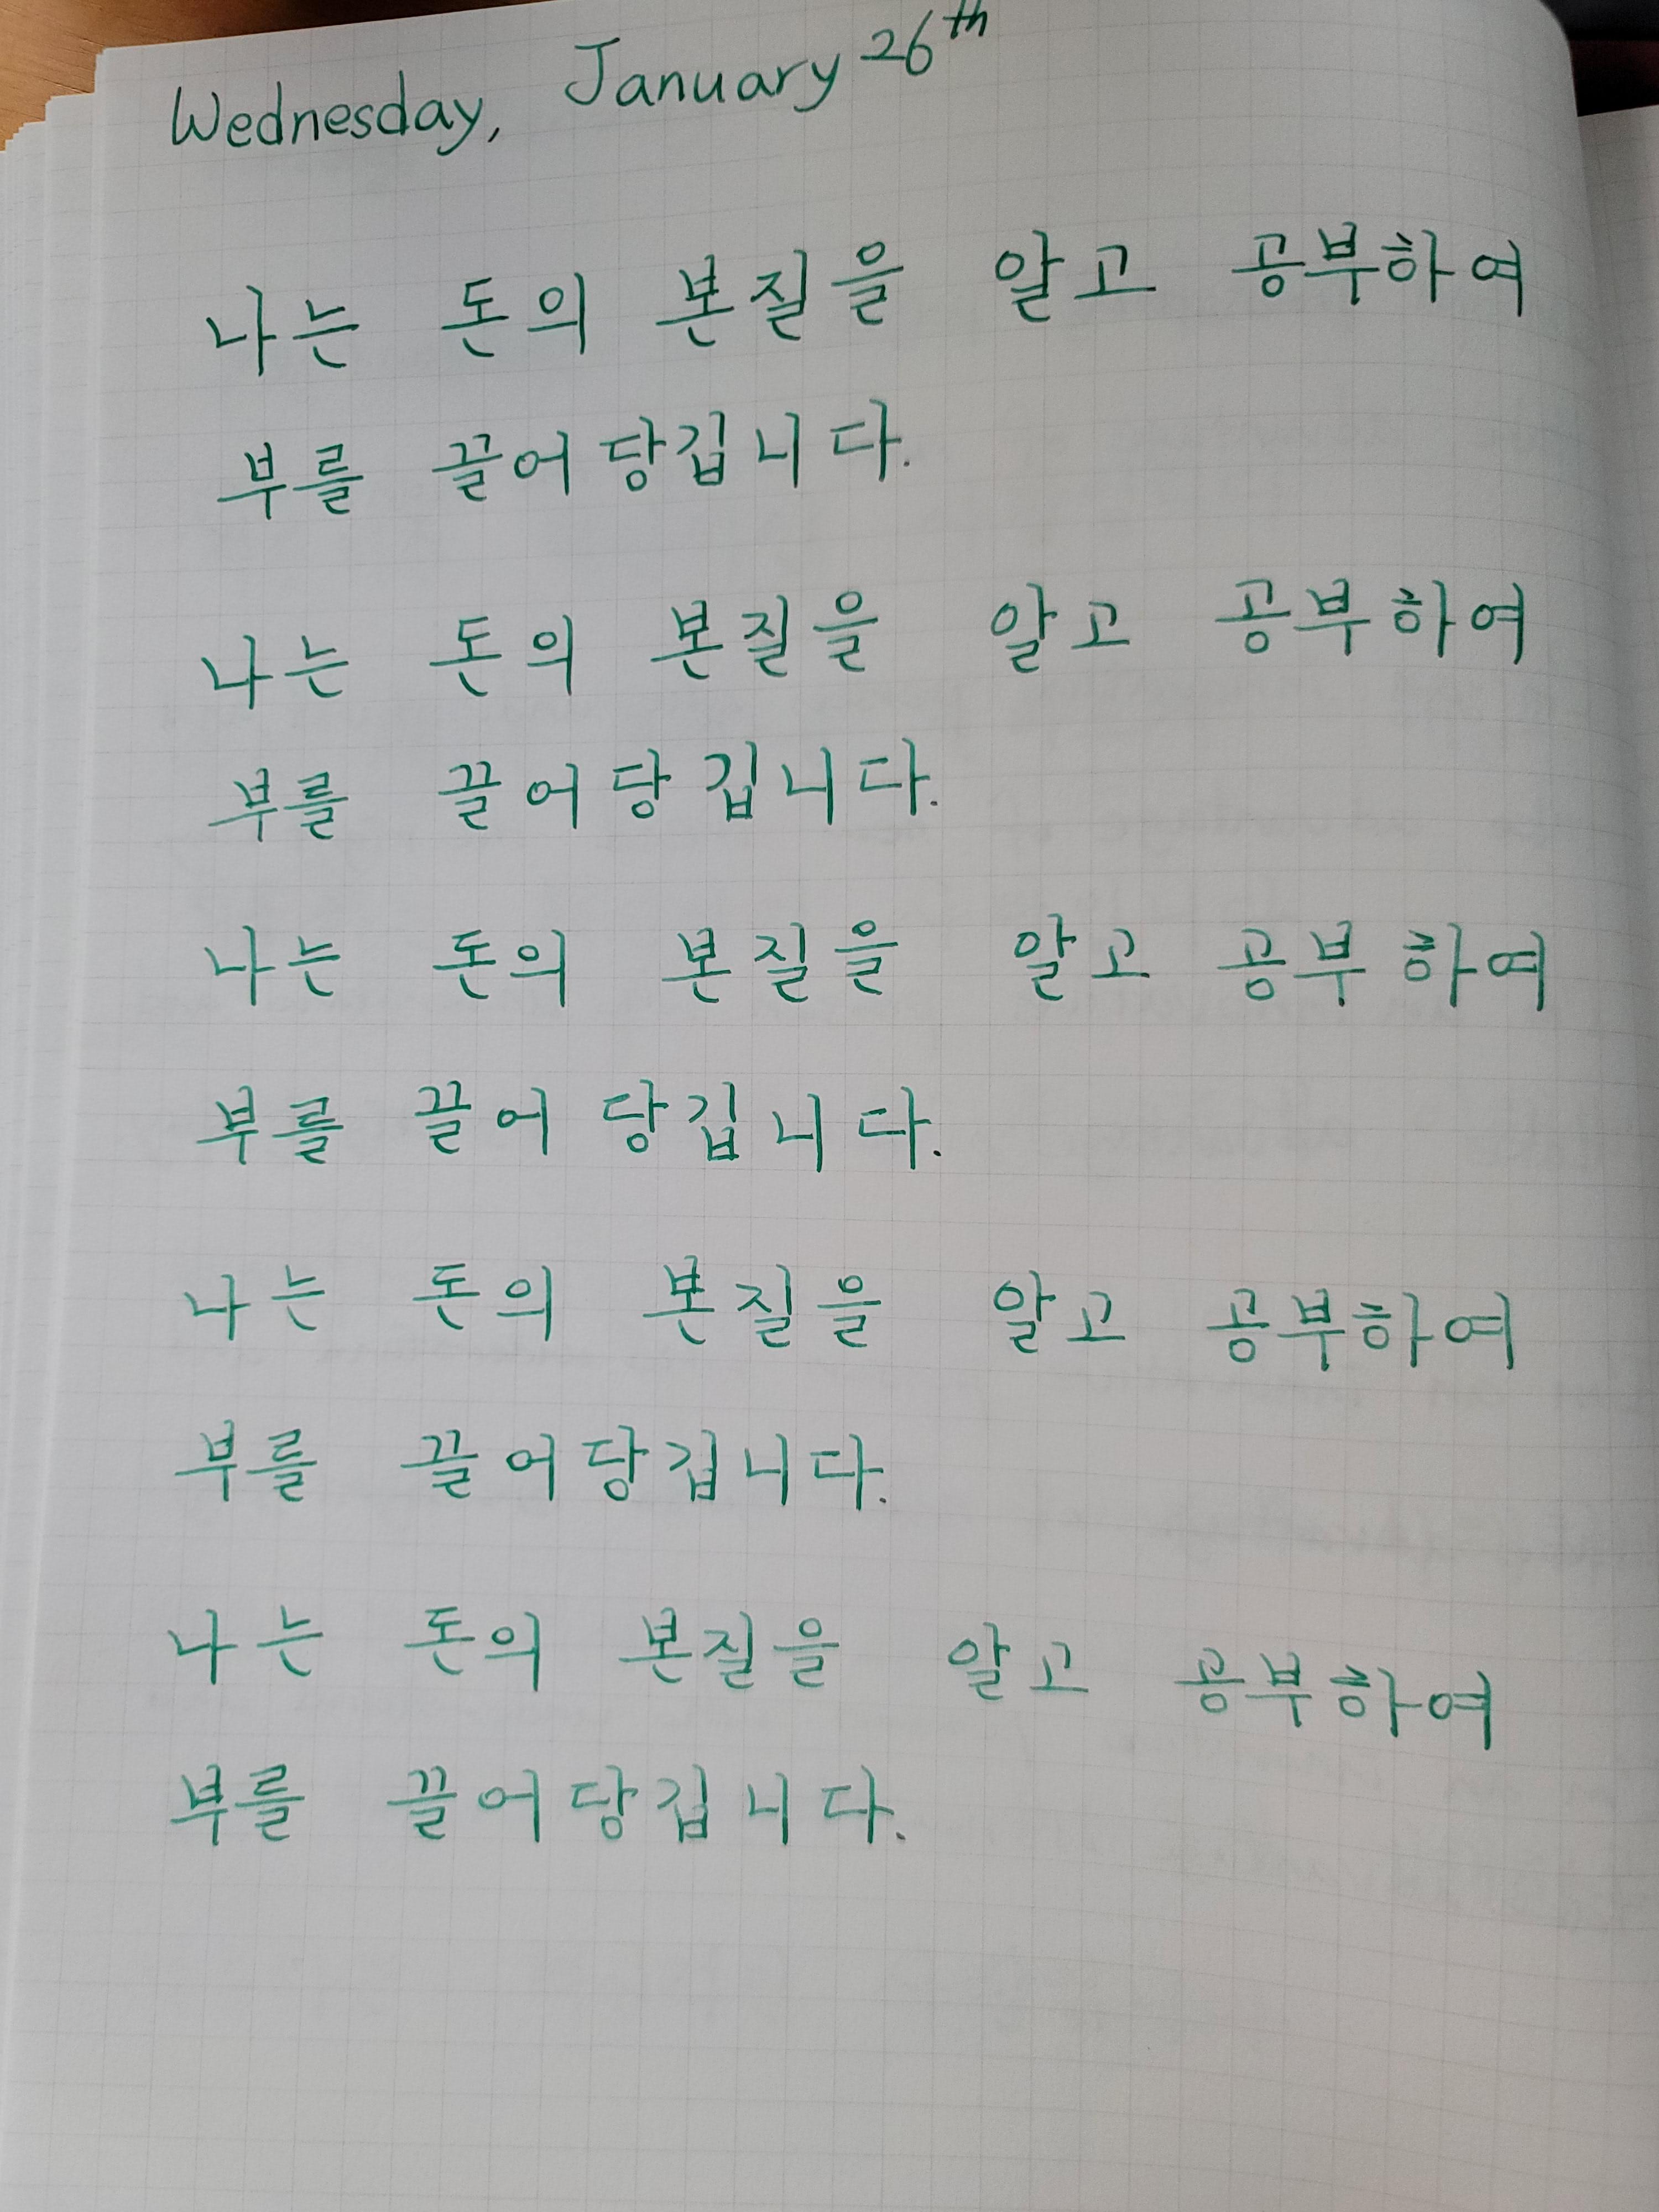 Wednesday, January 26th
나는 돈의 본질을 알고 공부하여
부를 끌어당깁니다.
나는 돈의 본질을 알고 공부하여
부를 끌어당깁니다.
나는 돈의 본질을 알고 공부하여
부를 끌어당깁니다.
나는 돈의 본질을 알고 공부하여
부를 끌어당깁니다.
나는 돈의 본질을 알고 공부하여
부를 끌어당깁니다.